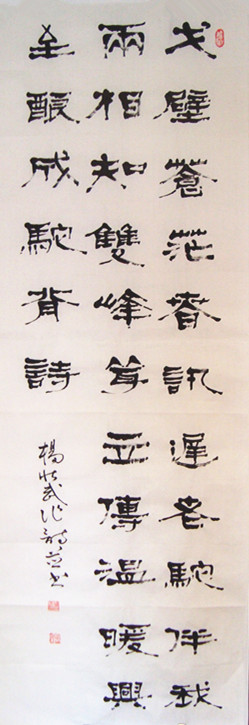 戈壁蒼茫春訊遲老駝伴我
兩相知雙峰并立傳溫暖興
至酿成駝背詩
楊武作詩并書